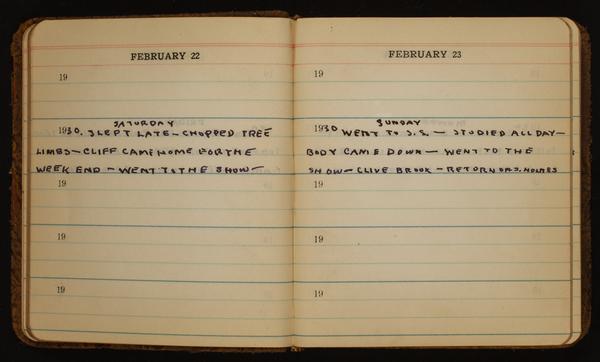 FEBRUARY 22
19
SATURDAY
1930. SLEPT LATE - CHOPPED TREE
LIMBS - CLIFF CAME HOME FOR THE
WEEK END - WENT TO THE SHOW -
19
19
19
FEBRUARY 23
19
SUNDAY
1930 WENT TO S.S. - STUDIED ALL DAY -
BODY CAME DOWN - WENT TO THE
SHOW - CLIVE BROOK - RETURN OF S. HOLMES
19
19
19